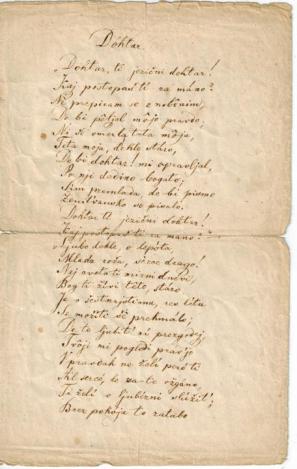 Dohtar.
„Dohtar, ti jezični dohtar!
Kaj postopaš ti za mano?
Ne prepiram se z nobenim,
De bi peljal mojo pravdo,
Ni še omerla teta moja,
Teta moja, dekle staro,
De bi dohtar! mi opravljal,
Po nji dedino bogato;
Sim premlada, de bi pismo
Ženitvansko se pisalo.
Dohtar, ti jezični dohtar!
Kaj postopaš ti za mano?"
„Ljubo dekle, o lepota,
Mlada roža, serce drago!
Nej
Bog ti živi teto, staro
Je
Se možiti še prehmalo;
De te ljubit' ni prezgodej,
Tvoji mi pogledi pravjo
I pravdah ne želi
Al serce, le za-te vžgano,
Ti želi o ljubezni služit';
Brez pokoja te